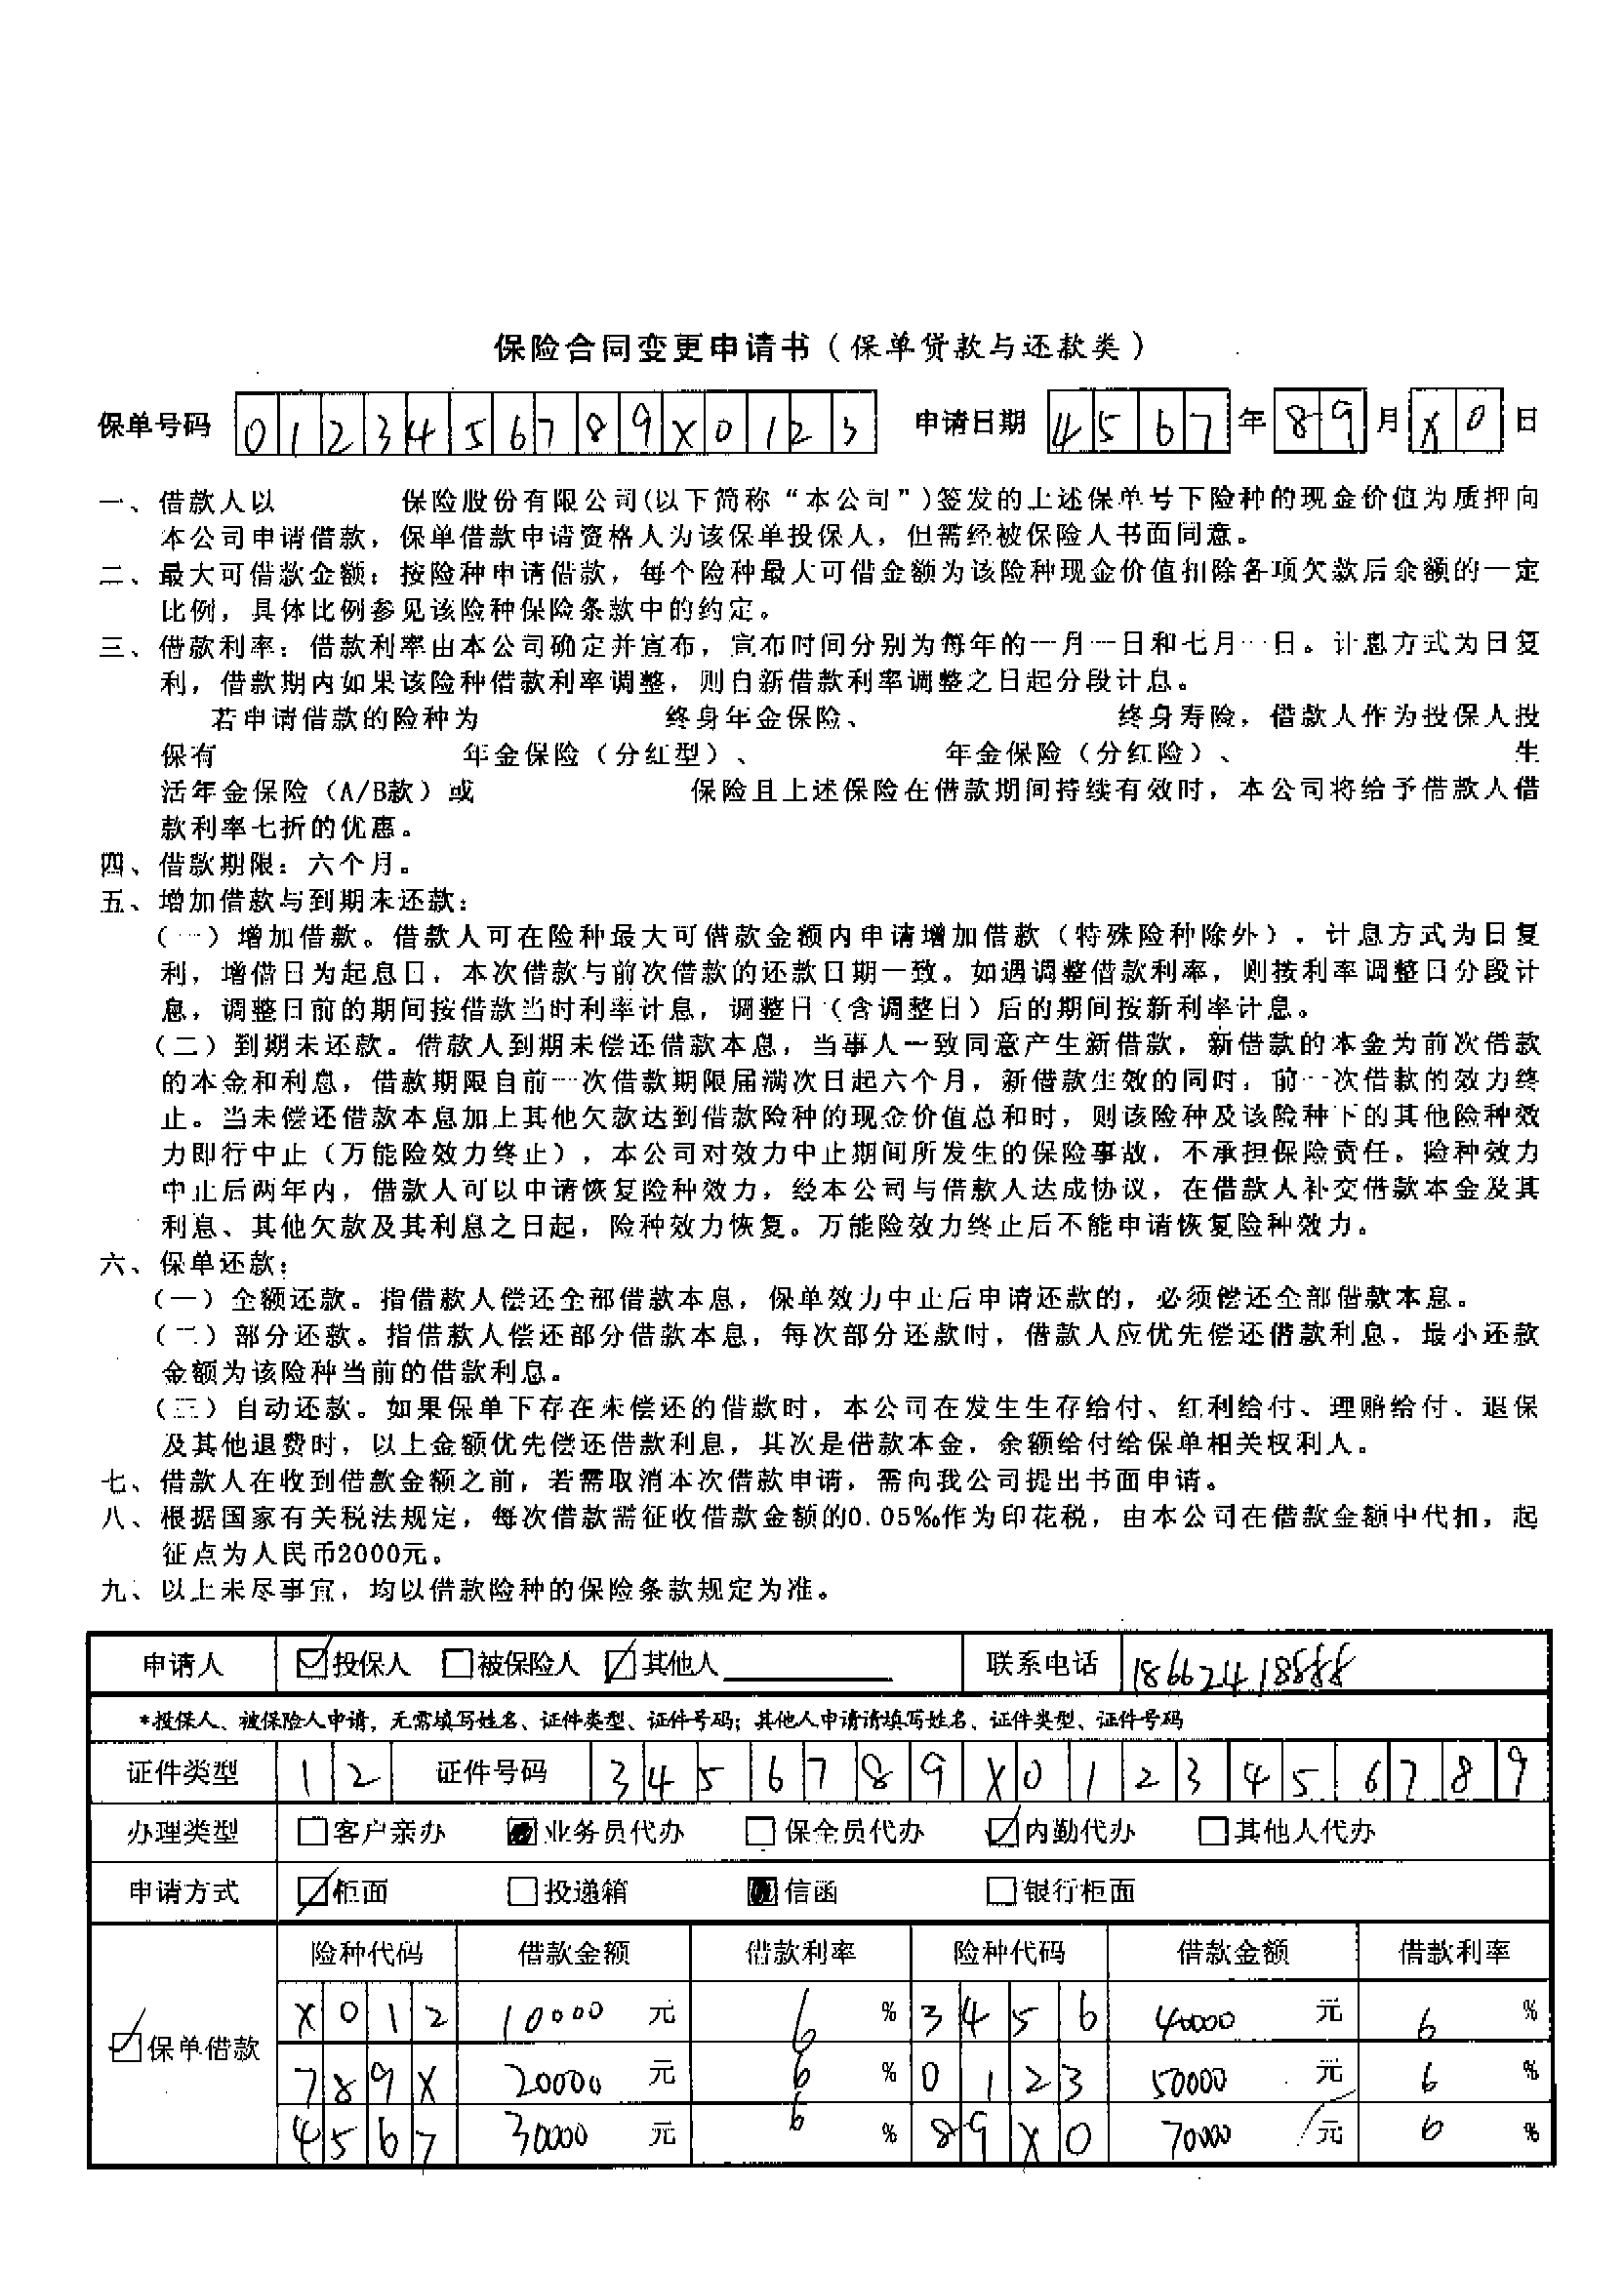 保险合同变更申请书（保单贷款与还款类）
保单号码 0 1 2 3 4 5 6 7 8 9 X 0 1 2 3 申请日期 4 5 6 7 年 8 9 月 X 0 日
一、借款人以 保险股份有限公司(以下简称“本公司”)签发的上述保单号下险种的现金价值为质押向
本公司申请借款，保单借款申请资格人为该保单投保人，但需经被保险人书面同意。
二、最大可借款金额：按险种申请借款，每个险种最大可借金额为该险种现金价值扣除各项欠款后余额的一定
比例，具体比例参见该险种保险条款中的约定。
三、借款利率：借款利率由本公司确定并宣布，宣布时间分别为每年的一月一日和七月一日。计息方式为日复
利，借款期内如果该险种借款利率调整，则自新借款利率调整之日起分段计息。
若申请借款的险种为 终身年金保险、 终身寿险，借款人作为投保人投
保有 年金保险（分红型）、 年金保险（分红险）、 生
活年金保险（A/B款）或 保险且上述保险在借款期间持续有效时，本公司将给予借款人借
款利率七折的优惠。
四、借款期限：六个月。
五、增加借款与到期未还款：
（一）增加借款。借款人可在险种最大可借款金额内申请增加借款（特殊险种除外），计息方式为日复
利，增借日为起息日，本次借款与前次借款的还款日期一致。如遇调整借款利率，则按利率调整日分段计
息，调整日前的期间按借款当时利率计息，调整日（含调整日）后的期间按新利率计息。
（二）到期未还款。借款人到期未偿还借款本息，当事人一致同意产生新借款，新借款的本金为前次借款
的本金和利息，借款期限自前一次借款期限届满次日起六个月，新借款生效的同时，前一次借款的效力终
止。当未偿还借款本息加上其他欠款达到借款险种的现金价值总和时，则该险种及该险种下的其他险种效
力即行中止（万能险效力终止），本公司对效力中止期间所发生的保险事故，不承担保险责任。险种效力
中止后两年内，借款人可以申请恢复险种效力，经本公司与借款人达成协议，在借款人补交借款本金及其
利息、其他欠款及其利息之日起，险种效力恢复。万能险效力终止后不能申请恢复险种效力。
六、保单还款：
（一）全额还款。指借款人偿还全部借款本息，保单效力中止后申请还款的，必须偿还全部借款本息。
（二）部分还款。指借款人偿还部分借款本息，每次部分还款时，借款人应优先偿还借款利息，最小还款
金额为该险种当前的借款利息。
（三）自动还款。如果保单下存在未偿还的借款时，本公司在发生生存给付、红利给付、理赔给付、退保
及其他退费时，以上金额优先偿还借款利息，其次是借款本金，余额给付给保单相关权利人。
七、借款人在收到借款金额之前，若需取消本次借款申请，需向我公司提出书面申请。
八、根据国家有关税法规定，每次借款需征收借款金额的0.05‰作为印花税，由本公司在借款金额中代扣，起
征点为人民币2000元。
九、以上未尽事宜，均以借款险种的保险条款规定为准。
申请人 投保人 被保险人 其他人 联系电话 18662418588
*投保人、被保险人申请，无需填写姓名、证件类型、证件号码；其他人申请请填写姓名、证件类型、证件号码
证件类型 1 2 证件号码 3 4 5 6 7 8 9 X 0 1 2 3 4 5 6 7 8 9
办理类型 客户亲办 业务员代办 保全员代办 内勤代办 其他人代办
申请方式 柜面 投递箱 信函 银行柜面
险种代码 借款金额 借款利率 险种代码 借款金额 借款利率
X 0 1 2 10000 元 6 % 3 4 5 6 40000 元 6 %
保单借款
7 8 9 X 20000 元 6 % 0 1 2 3 50000 元 6 %
4 5 6 7 30000 元 6 % 8 9 X 0 70000 元 6 %